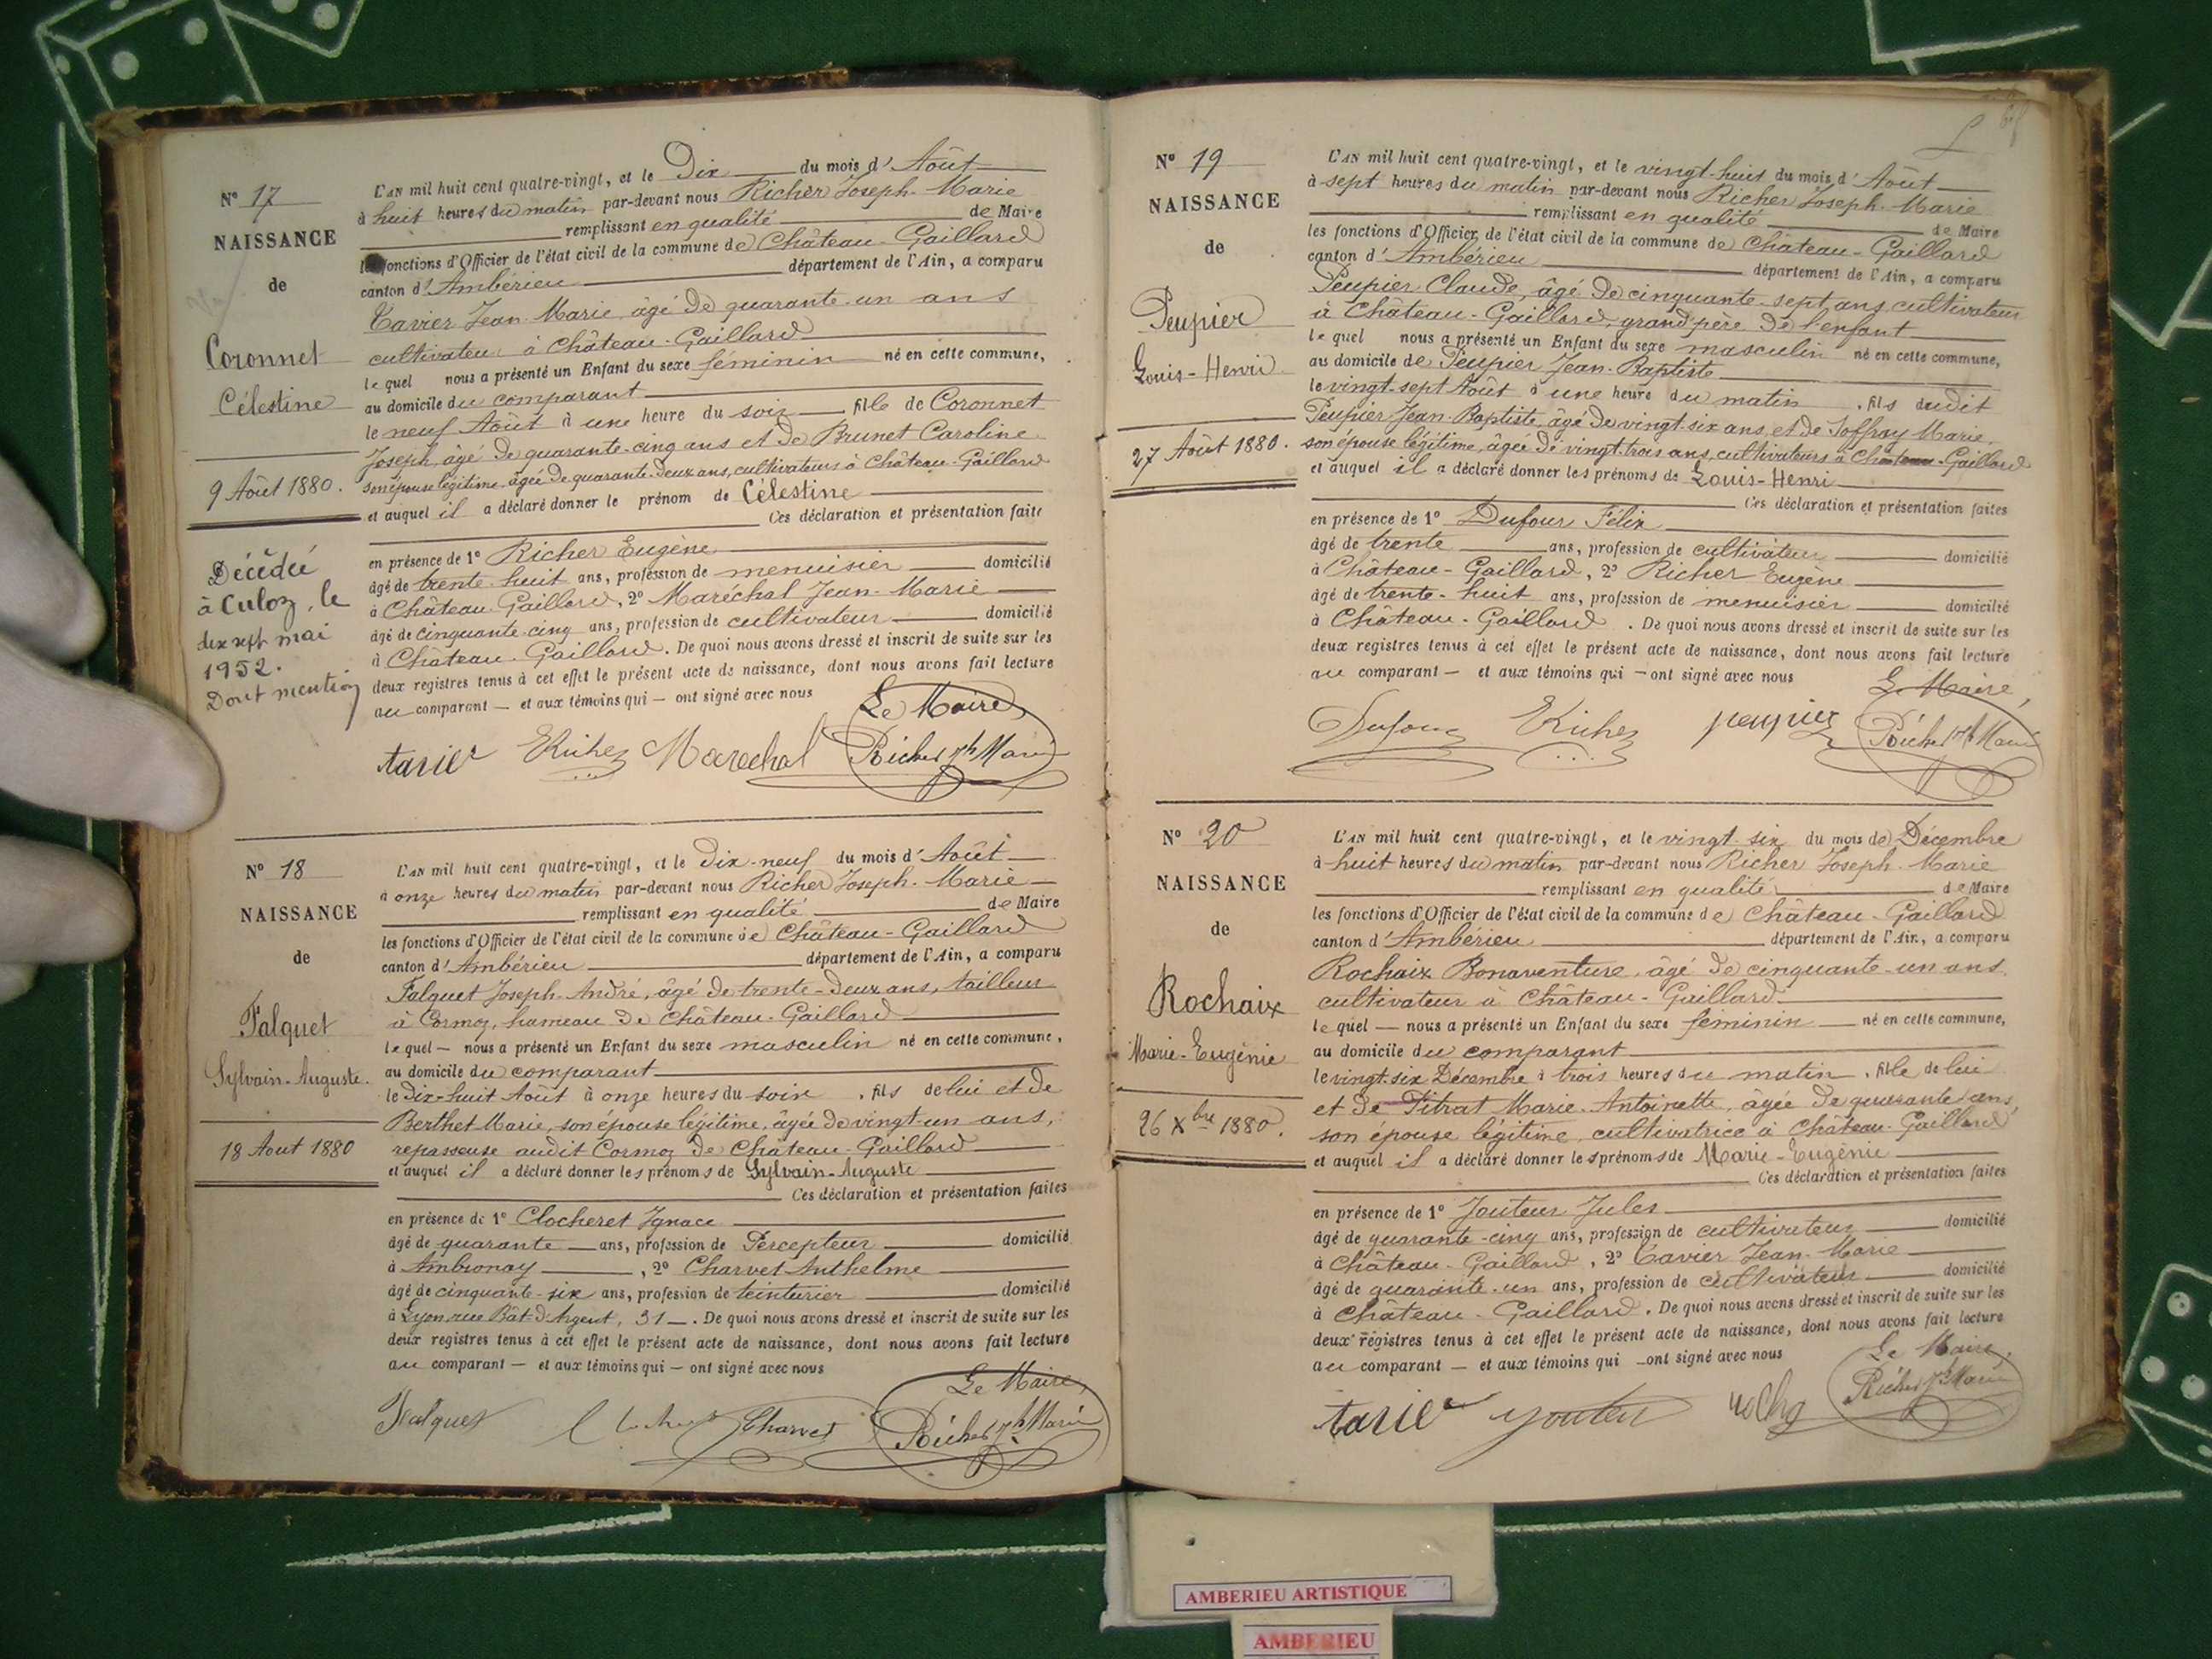 N° 17
NAISSANCE
de
Coronnet
Célestine
9 Août 1880.
Décédée
à Culoz, le
dix sept mai
1952.
Dont mention
L'AN mil huit cent quatre-vingt, et le Dix du mois d'Août
à huit heures du matin par-devant nous Richer Joseph-Marie
remplissant en qualité de Maire
les fonctions d'Officier de l'état civil de la commune de Château-Gaillard
canton d'Ambérieu département de l'Ain, a comparu
Tavier Jean-Marie âgé de quarante-un ans
cultivateur à Château-Gaillard
lequel nous a présenté un Enfant du sexe féminin né en cette commune,
au domicile du comparant
le neuf Août à une heure du soir fille de Coronnet
Joseph, âgé de quarante-cinq ans et de Brunet Caroline
son épouse légitime âgée de quarante-deux ans, cultivateurs à Château-Gaillard
et auquel il a déclaré donner le prénom de Célestine
Ces déclaration et présentation faite
en présence de 1° Richer Eugène
âgé de trente-huit ans, profession de menuisier domicilié
à Château-Gaillard, 2° Maréchal Jean-Marie
âgé de cinquante-cinq ans, profession de cultivateur domicilié
à Château-Gaillard. De quoi nous avons dressé et inscrit de suite sur les
deux registres tenus à cet effet le présent acte de naissance, dont nous avons fait lecture
au comparant — et aux témoins qui — ont signé avec nous
Le Maire
tavier ERicher Marechal Richer Jph Marie
N° 18
NAISSANCE
de
Falquet
Sylvain-Auguste.
18 Aout 1880
L'AN mil huit cent quatre-vingt, et le Dix-neuf du mois d'Août
à onze heures du matin par-devant nous Richer Joseph-Marie
remplissant en qualité de Maire
les fonctions d'Officier de l'état civil de la commune de Château-Gaillard
canton d'Ambérieu département de l'Ain, a comparu
Falquet Joseph-André, âgé de trente-deux ans, tailleur
à Cormoz, hameau de Château-Gaillard
lequel — nous a présenté un Enfant du sexe masculin né en cette commune,
au domicile du comparant
le Dix-huit Août à onze heures du soir, fils de lui et de
Berthet Marie, son épouse légitime, âgée de vingt-un ans,
repasseuse audit Cormoz de Château-Gaillard
et auquel il a déclaré donner les prénoms de Sylvain-Auguste
Ces déclaration et présentation faites
en présence de 1° Clocheret Ignace
âgé de quarante ans, profession de Percepteur domicilié
à Ambronay, 2° Charvet Anthelme
âgé de cinquante-six ans, profession de teinturier domicilié
à Lyon, rue Bât-d'Argent, 31 —. De quoi nous avons dressé et inscrit de suite sur les
deux registres tenus à cet effet le présent acte de naissance, dont nous avons fait lecture
au comparant — et aux témoins qui — ont signé avec nous
Le Maire,
Falquet Charvet Richer Jph Marie
N° 19
NAISSANCE
de
Peupier
Louis-Henri
27 Août 1880.
L'AN mil huit cent quatre-vingt, et le vingt-huit du mois d'Août
à sept heures du matin par-devant nous Richer Joseph-Marie
remplissant en qualité de Maire
les fonctions d'Officier de l'état civil de la commune de Château-Gaillard
canton d'Ambérieu département de l'Ain, a comparu
Peupier Claude, âgé de cinquante-sept ans, cultivateur
à Château-Gaillard, grand'père de l'enfant
lequel nous a présenté un Enfant du sexe masculin né en cette commune,
au domicile de Peupier Jean-Baptiste
le vingt-sept Août à une heure du matin, fils dudit
Peupier Jean-Baptiste, âgé de vingt-six ans, et de Joffray Marie,
son épouse légitime, âgée de vingt-trois ans, cultivateurs à Château-Gaillard
et auquel il a déclaré donner les prénoms de Louis-Henri
Ces déclaration et présentation faites
en présence de 1° Dufour Félix
âgé de trente ans, profession de cultivateur domicilié
à Château-Gaillard, 2° Richer Eugène
âgé de trente-huit ans, profession de menuisier domicilié
à Château-Gaillard. De quoi nous avons dressé et inscrit de suite sur les
deux registres tenus à cet effet le présent acte de naissance, dont nous avons fait lecture
au comparant — et aux témoins qui — ont signé avec nous
Le Maire,
Dufour ERicher peupier Richer Jph Marie
N° 20
NAISSANCE
de
Rochaix
Marie-Eugénie
26 Xbre 1880.
L'AN mil huit cent quatre-vingt, et le vingt-six du mois de Décembre
à huit heures du matin par-devant nous Richer Joseph-Marie
remplissant en qualité de Maire
les fonctions d'Officier de l'état civil de la commune de Château-Gaillard
canton d'Ambérieu département de l'Ain, a comparu
Rochaix Bonaventure, âgé de cinquante-un ans,
cultivateur à Château-Gaillard
lequel — nous a présenté un Enfant du sexe féminin né en cette commune,
au domicile du comparant
le vingt-six Décembre à trois heures du matin, fille de lui
et de Titrat Marie-Antoinette, âgée de quarante ans,
son épouse légitime, cultivatrice à Château-Gaillard
et auquel il a déclaré donner les prénoms de Marie-Eugénie
Ces déclaration et présentation faites
en présence de 1° Jouteur Jules
âgé de quarante-cinq ans, profession de cultivateur domicilié
à Château-Gaillard, 2° Tavier Jean-Marie
âgé de quarante-un ans, profession de cultivateur domicilié
à Château-Gaillard. De quoi nous avons dressé et inscrit de suite sur les
deux registres tenus à cet effet le présent acte de naissance, dont nous avons fait lecture
au comparant — et aux témoins qui — ont signé avec nous
Le Maire,
tavier Richer Jph Marie
AMBERIEU ARTISTIQUE
AMBERIEU